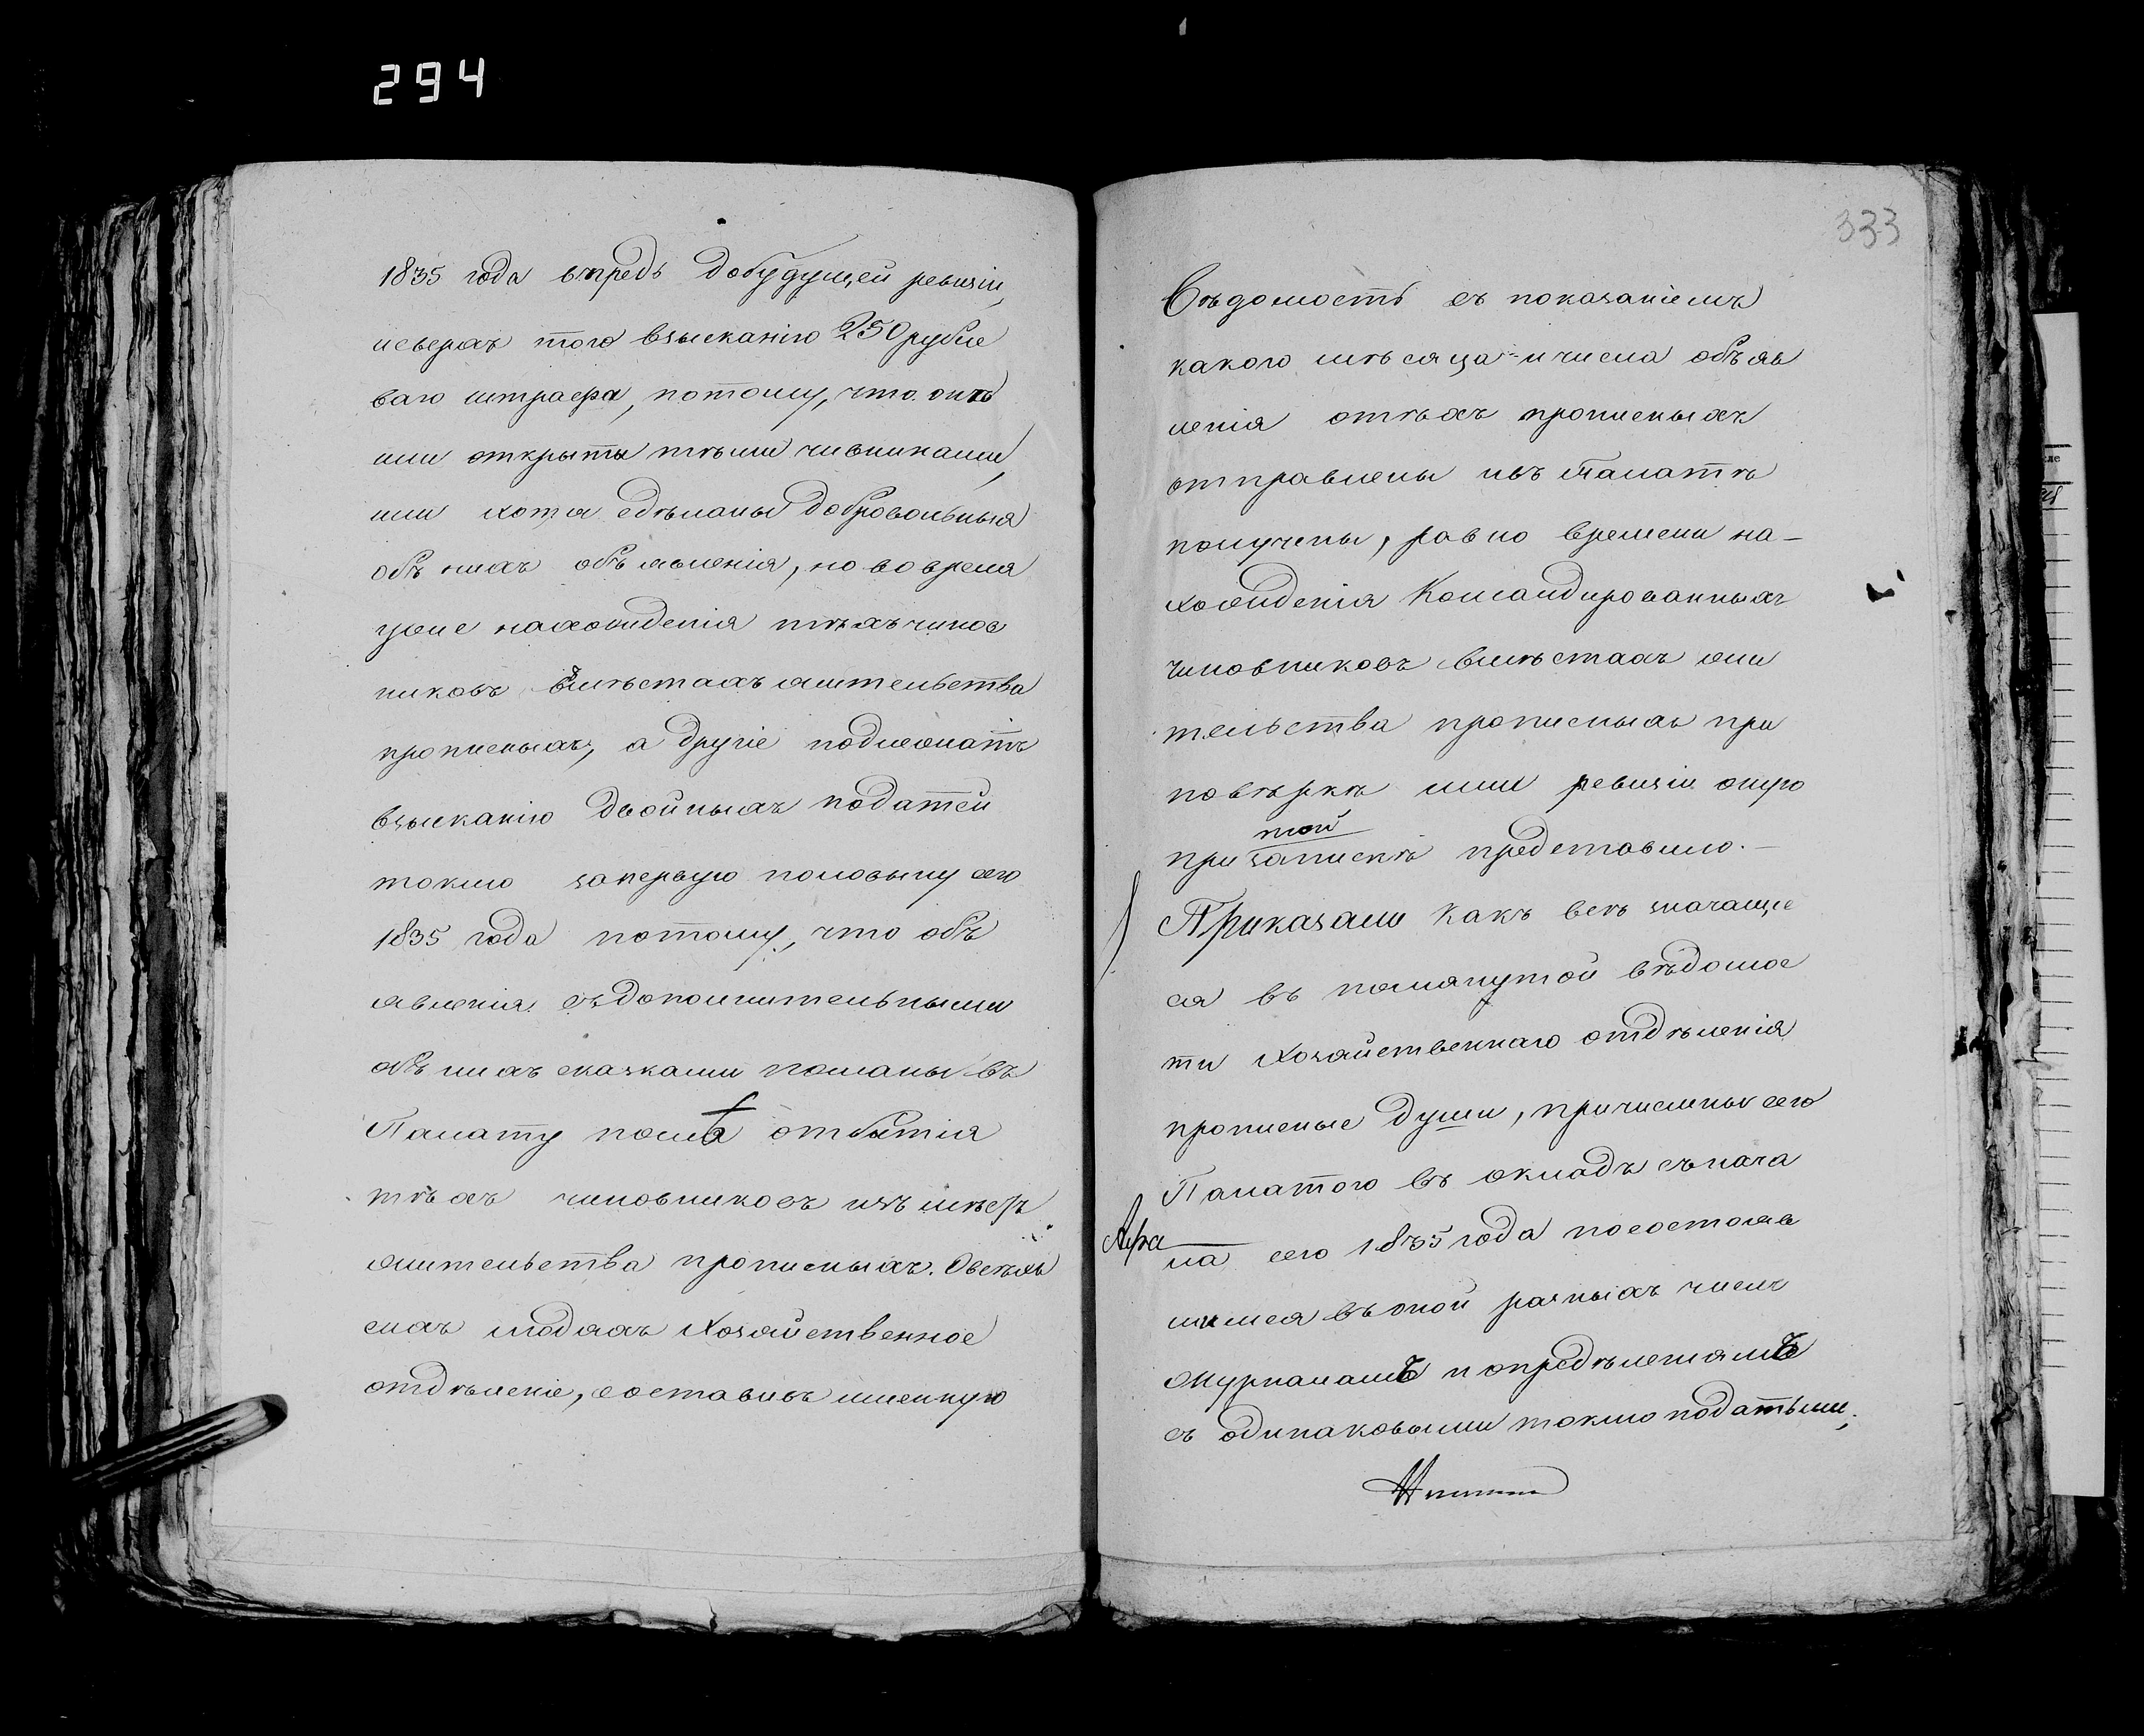 294
333
1835 года впредь добудущей ревизіи,
исверхъ того взысканію 250 рубле
ваго штрафа, потому, что онѣ
или открыты тѣми чивниками,
или хотя сдѣланы добровольныя
объ нихъ объявленія, но во время
уже нахожденія тѣхъ чинов
никовъ вмѣстахъ жительства
прописныхъ, а другіе подлежатъ
взысканію двойныхъ податей
токмо запервую половину сего
1835 года потому, что объ
явленія съдополнительными
объ нихъ сказками поданы въ
Палату послѣ отбытія
тѣхъ чиновниковъ изъ мѣстъ
жительства прописныхъ. Овсѣхъ
сихъ людяхъ Хозяйственное
отдѣленіе, составивъ имянную
Вѣдомость съ показаніемъ
какого мѣсяца и числа объяв
ленія отѣхъ прописныхъ
отправлены ивъ Палатѣ
получены, равно времени на-
хожденія Командированныхъ
чиновниковъ вмѣстахъ жи
тельства прописныхъ при
повѣркѣ ими ревизіи оную
той
при запискѣ представило.
Приказали какъ всѣ значащіе
ся въ помянутой вѣдомос
ти Хозяйственнаго отдѣленія
прописные души, причислены сею
Палатою въ окладъ сънача
ла сего 1835 года посостояв
шимся въ оной разныхъ числъ
журналамъ и опредѣленіямъ
съ одинаковыми токмо податьми;